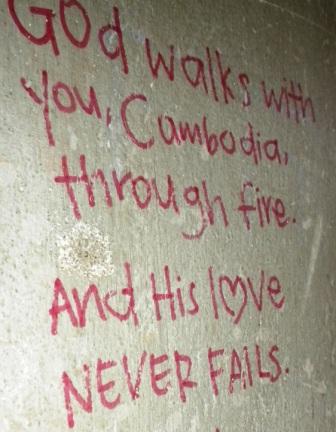 God walks with
you, Cambodia,
through fire.
And His love
NEVER FAILS.